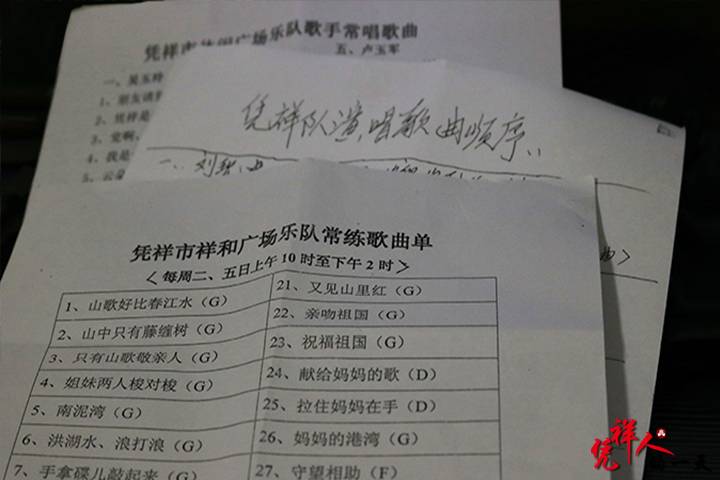 凭祥市休闲广场乐队歌手常唱歌曲
五、卢玉军
一、吴玉
1、朋友请
2、凭祥是
3、党啊、
4、我是
5、云
凭祥队演唱歌曲顺序
凭祥市祥和广场乐队常练歌曲单
＜每周二、五日上午10时至下午2时＞
1、山歌好比春江水（G）
2、山中只有藤缠树（G）
3、只有山歌敬亲人（G）
4、姐妹两人梭对梭（G）
5、南泥湾（G）
6、洪湖水、浪打浪（G）
7、手拿碟儿敲起来（G）
21、又见山里红（G）
22、亲吻祖国（G）
23、祝福祖国（G）
24、献给妈妈的歌（D）
25、拉住妈妈在手（D）
26、妈妈的港湾（G）
27、守望相助（F）
凭祥人
一天